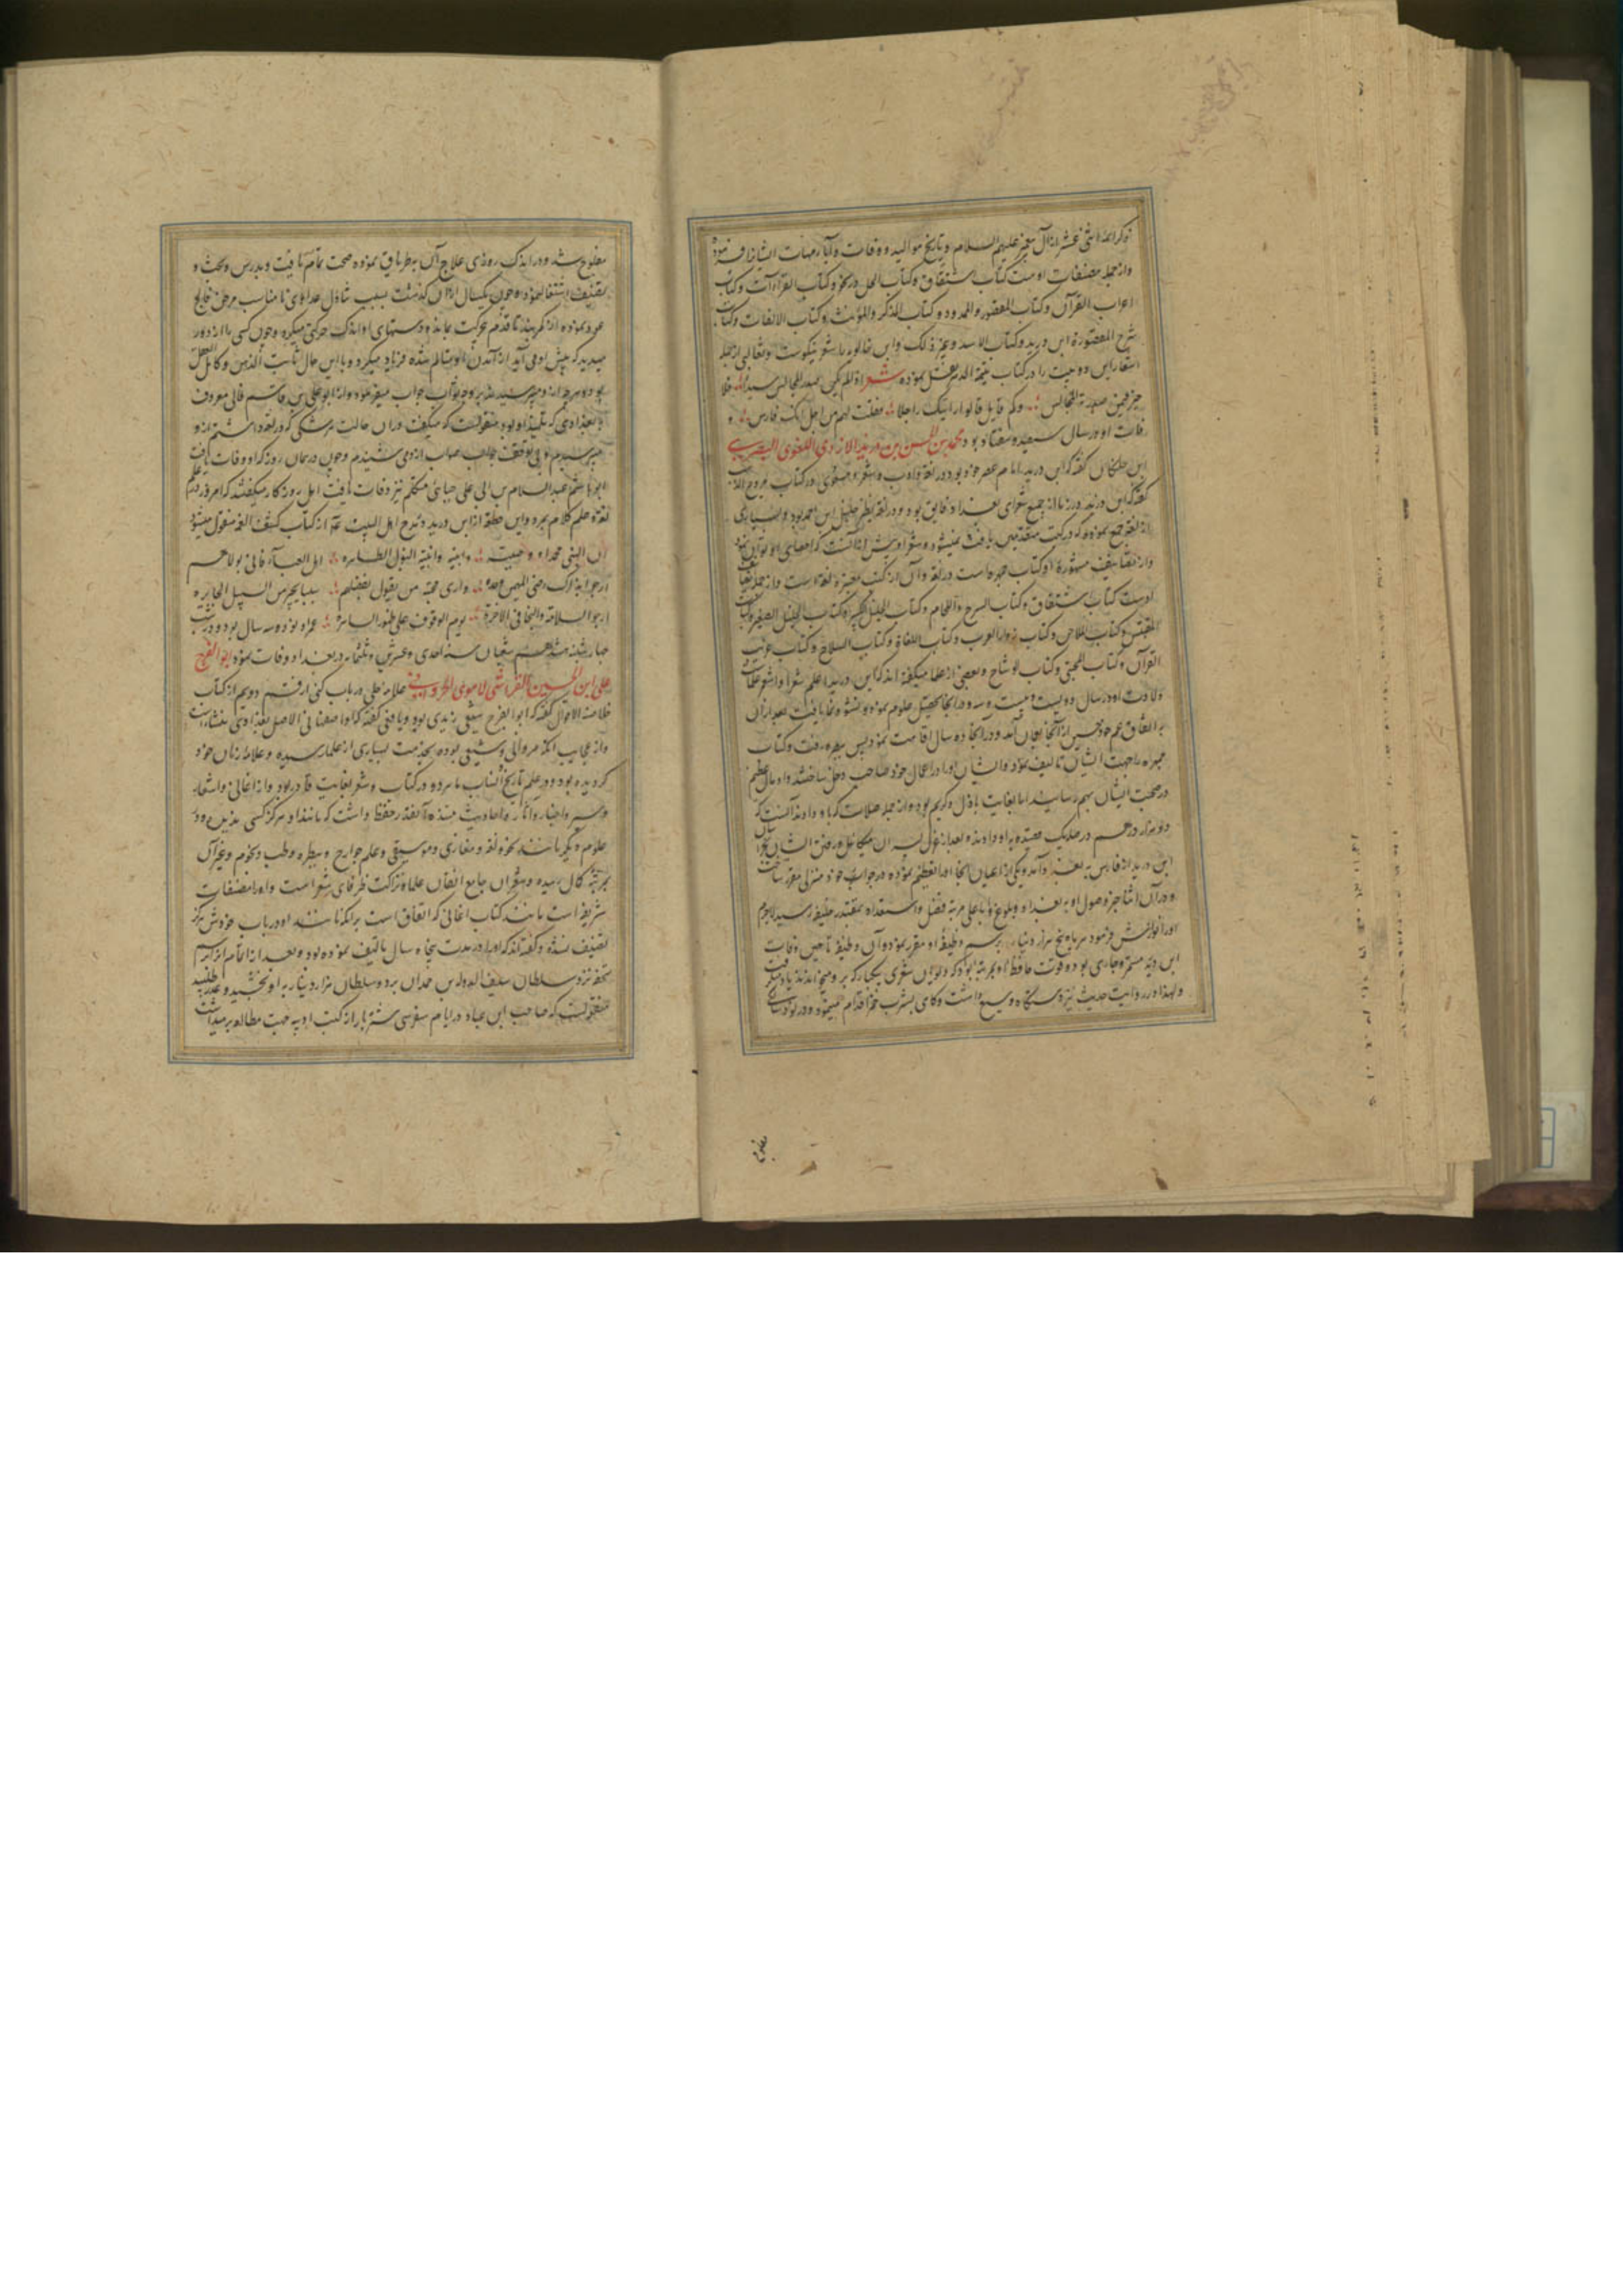 ذکر ائمه اثنی عشر از آل پیغمبر علیهم السلام و تاریخ موالید و وفات و آبا و امهات ایشان فرموده
و از جمله مصنفات اوست کتاب اشتقاق و کتاب الجمل در نحو و کتاب القراآت و کتاب
اعراب القرآن و کتاب المقصور و الممدود و کتاب المذکر و المؤنث و کتاب الالفات و کتاب
شرح المقصورة ابن درید و کتاب الاسد و غیر ذلک و ابن خالویه را شعر نیکوست و ثعالبی از جمله
اشعار این دو بیت را در کتاب یتیمة الدهر نقل نموده شعر اذا لم یکن صدر المجالس سیدا فلا
خیر فیمن صدرته المجالس وکم قایل قالوا رایتک راجلا فقلت لهم من اجل انک فارس و
فات او در سال سیصد و هفتاد بود محمد بن الحسن بن درید الازدی اللغوی البصری
ابن خلکان گفته که ابن درید امام عصر خود بود در لغة و ادب و شعر و مسعودی در کتاب مروج الذهب
گفته که ابن درید در زمان از جمیع شعرای بغداد فایق بود و در لغة نظیر خلیل ابن احمد بود و بسیاری
از لغة جمع نموده که در کتب متقدمین یافت نمیشود و شعر او بیش از آنست که احصای او توان نمود
و از تصانیف مشهوره او کتاب جمهره است در لغة و آن از کتب معتبره لغة است و از جمله تصانیف
اوست کتاب اشتقاق و کتاب السرج و اللجام و کتاب الخیل الکبیر و کتاب الخیل الصغیر و کتاب
المقتبس و کتاب الملاحن و کتاب زوار العرب و کتاب اللغات و کتاب السلاح و کتاب غریب
القرآن و کتاب المجتبی و کتاب الوشاح و بعضی از علما میگفته اند که ابن درید اعلم شعرا و اشعر علماست
ولادت او در سال دویست و بیست و سه و در آنجا تحصیل علوم نمود و نشو و نما یافت بعد از آن
به اتفاق عم خود حسین از آنجا بعمان آمد و در آنجا ده سال اقامت نمود پس ببصره رفت و کتاب
جمهره را جهت ایشان تالیف نمود و ایشان او را در اعمال خود صاحب دخل ساختند و او مال عظیم
در صحبت ایشان بهم رسانید اما بغایت باذل و کریم بود و از جمله صلات که باو دادند آنست که
ده هزار درهم در صله یک قصیده باو دادند و بعد از عزل پسران میکائیل و رفتن ایشان بخراسان
ابن درید از فارس به بغداد آمد و یکی از اعیان آنجا او را تعظیم نموده در جوار خود منزلی مقرر ساخت
و در آن اثنا خبر وصول او به بغداد و بلوغ او باعلی مرتبه فضل و استعداد بمقتدر خلیفه رسید لاجرم
او را نوازش فرمود هر ماه پنجهزار دینار برسم وظیفه او مقرر نمود و آن وظیفه تا حین وفات
ابن درید مستمر و جاری بود و قوت حافظه او بمرتبه بود که دیوان شعری یکبار که بر او میخواندند یاد میگرفت
و لهذا در روایت حدیث نیز دستگاه وسیع داشت و گاهی بشرب خمر اقدام مینمود و در نود سالگی
مفلوج
مفلوج شد و در اندک روزی علاج آن به تریاق نموده صحت تمام یافت و بدرس و بحث و
تصنیف اشتغال نمود و چون یکسال از آن گذشت بسبب تناول غذاهای نامناسب مرض فالج
عود نموده از کمر بند تا قدم از حرکت بمانده و دستهای او اندک حرکتی میکرد و چون کسی را از دور
میدید که پیش او می آید از آمدن او متالم شده فریاد میکرد و با این حال ثابت الذهن و کامل العقل
بود و هر چه از او میپرسیدند بر وجه صواب جواب میفرمود و از ابو علی بن قاسم قالی معروف
ببغدادی که تلمیذ او بود منقولست که میگفت در آن حالت هر شکی که در لغة داشتم از او
میپرسیدم و بی توقف جواب صواب از وی شنیدم و چون در همان روز که او وفات یافت
ابو هاشم عبدالسلام بن ابی علی جبائی متکلم نیز وفات یافت اهل روزگار میگفتند که امروز علم
لغة و علم کلام بمرد و این قطعه از ابن درید در مدح اهل البیت ع از کتاب کشف الغمه منقول میشود
ان النبی محمدا و وصیه وابنیه وابنته البتول الطاهره اهل العباء فاننی بولاهم
ارجو بذاک رضی المهیمن وحده واری محبة من یقول بفضلهم سببا یجیر من السبیل الجایره
ارجو السلامة والنجا فی الاخرة یوم الوقوف علی ظهور الساهره عمر او نود و سه سال بود و در شب
چهارشنبه هیجدهم شعبان سنه احدی و عشرین و ثلثمایه در بغداد وفات نمود ابو الفرج
علی ابن الحسین القرشی الاموی المروانی علامه حلی در باب کنی از قسم دویم از کتاب
خلاصة الاقوال گفته که ابو الفرج شیعی زیدی بود و یافعی گفته که او اصفهانی الاصل بغدادی منشاست
و از عجایب آنکه مروانی و شیعی بوده بخدمت بسیاری از علما رسیده و علامه زمان خود
گردیده بود و در علم تاریخ انساب ماهر و در کتاب و شعر بغایت قادر بود و از اغانی و اشعار
و سیر و اخبار و آثار و احادیث مسنده آنقدر حفظ داشت که مانند او هرگز کسی ندیده و در
علوم دیگر مانند نحو و لغة و مغازی و موسیقی و علم جوارح و بیطره و طب و نجوم و غیر آن
بمرتبه کمال رسیده و شعر آن جامع اتقان علما و نزاکت ظرفای شعراست و او را مصنفات
شریفه است مانند کتاب اغانی که اتفاق است بر آنکه مانند او در باب خودش هرگز
تصنیف نشده و گفته اند که او را در مدت پنجاه سال تالیف نموده بود و بعد از اتمام آنرا برسم
تحفه نزد سلطان سیف الدوله بن حمدان برد و سلطان هزار دینار به او بخشید و عذر طلبید
منقولست که صاحب ابن عباد در ایام سفر سی شتر بار از کتب ادبیه جهت مطالعه بر میداشت